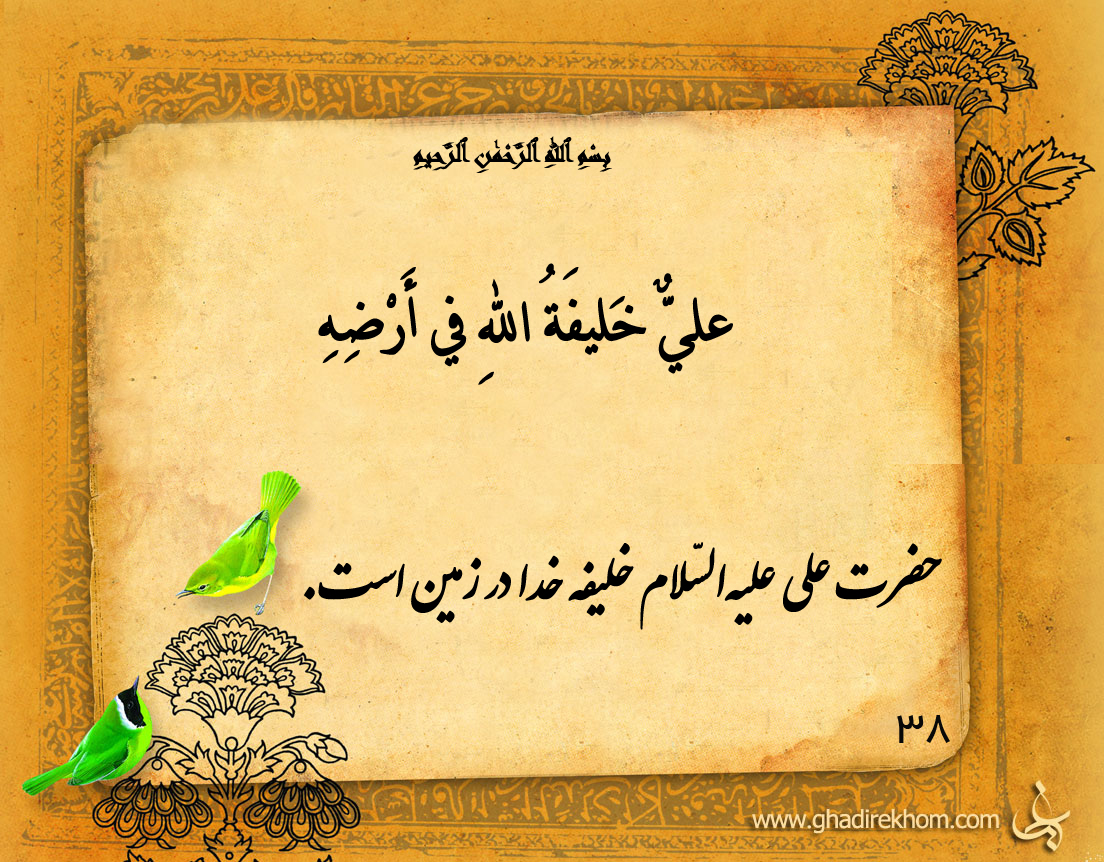 بِسْمِ اللهِ الرَّحْمٰنِ الرَّحِيمِ
عليٌّ خَليفَةُ اللهِ في أَرْضِهِ
حضرت علی علیه‌السّلام خلیفه خدا در زمین است.
۳۸
www.ghadirekhom.com